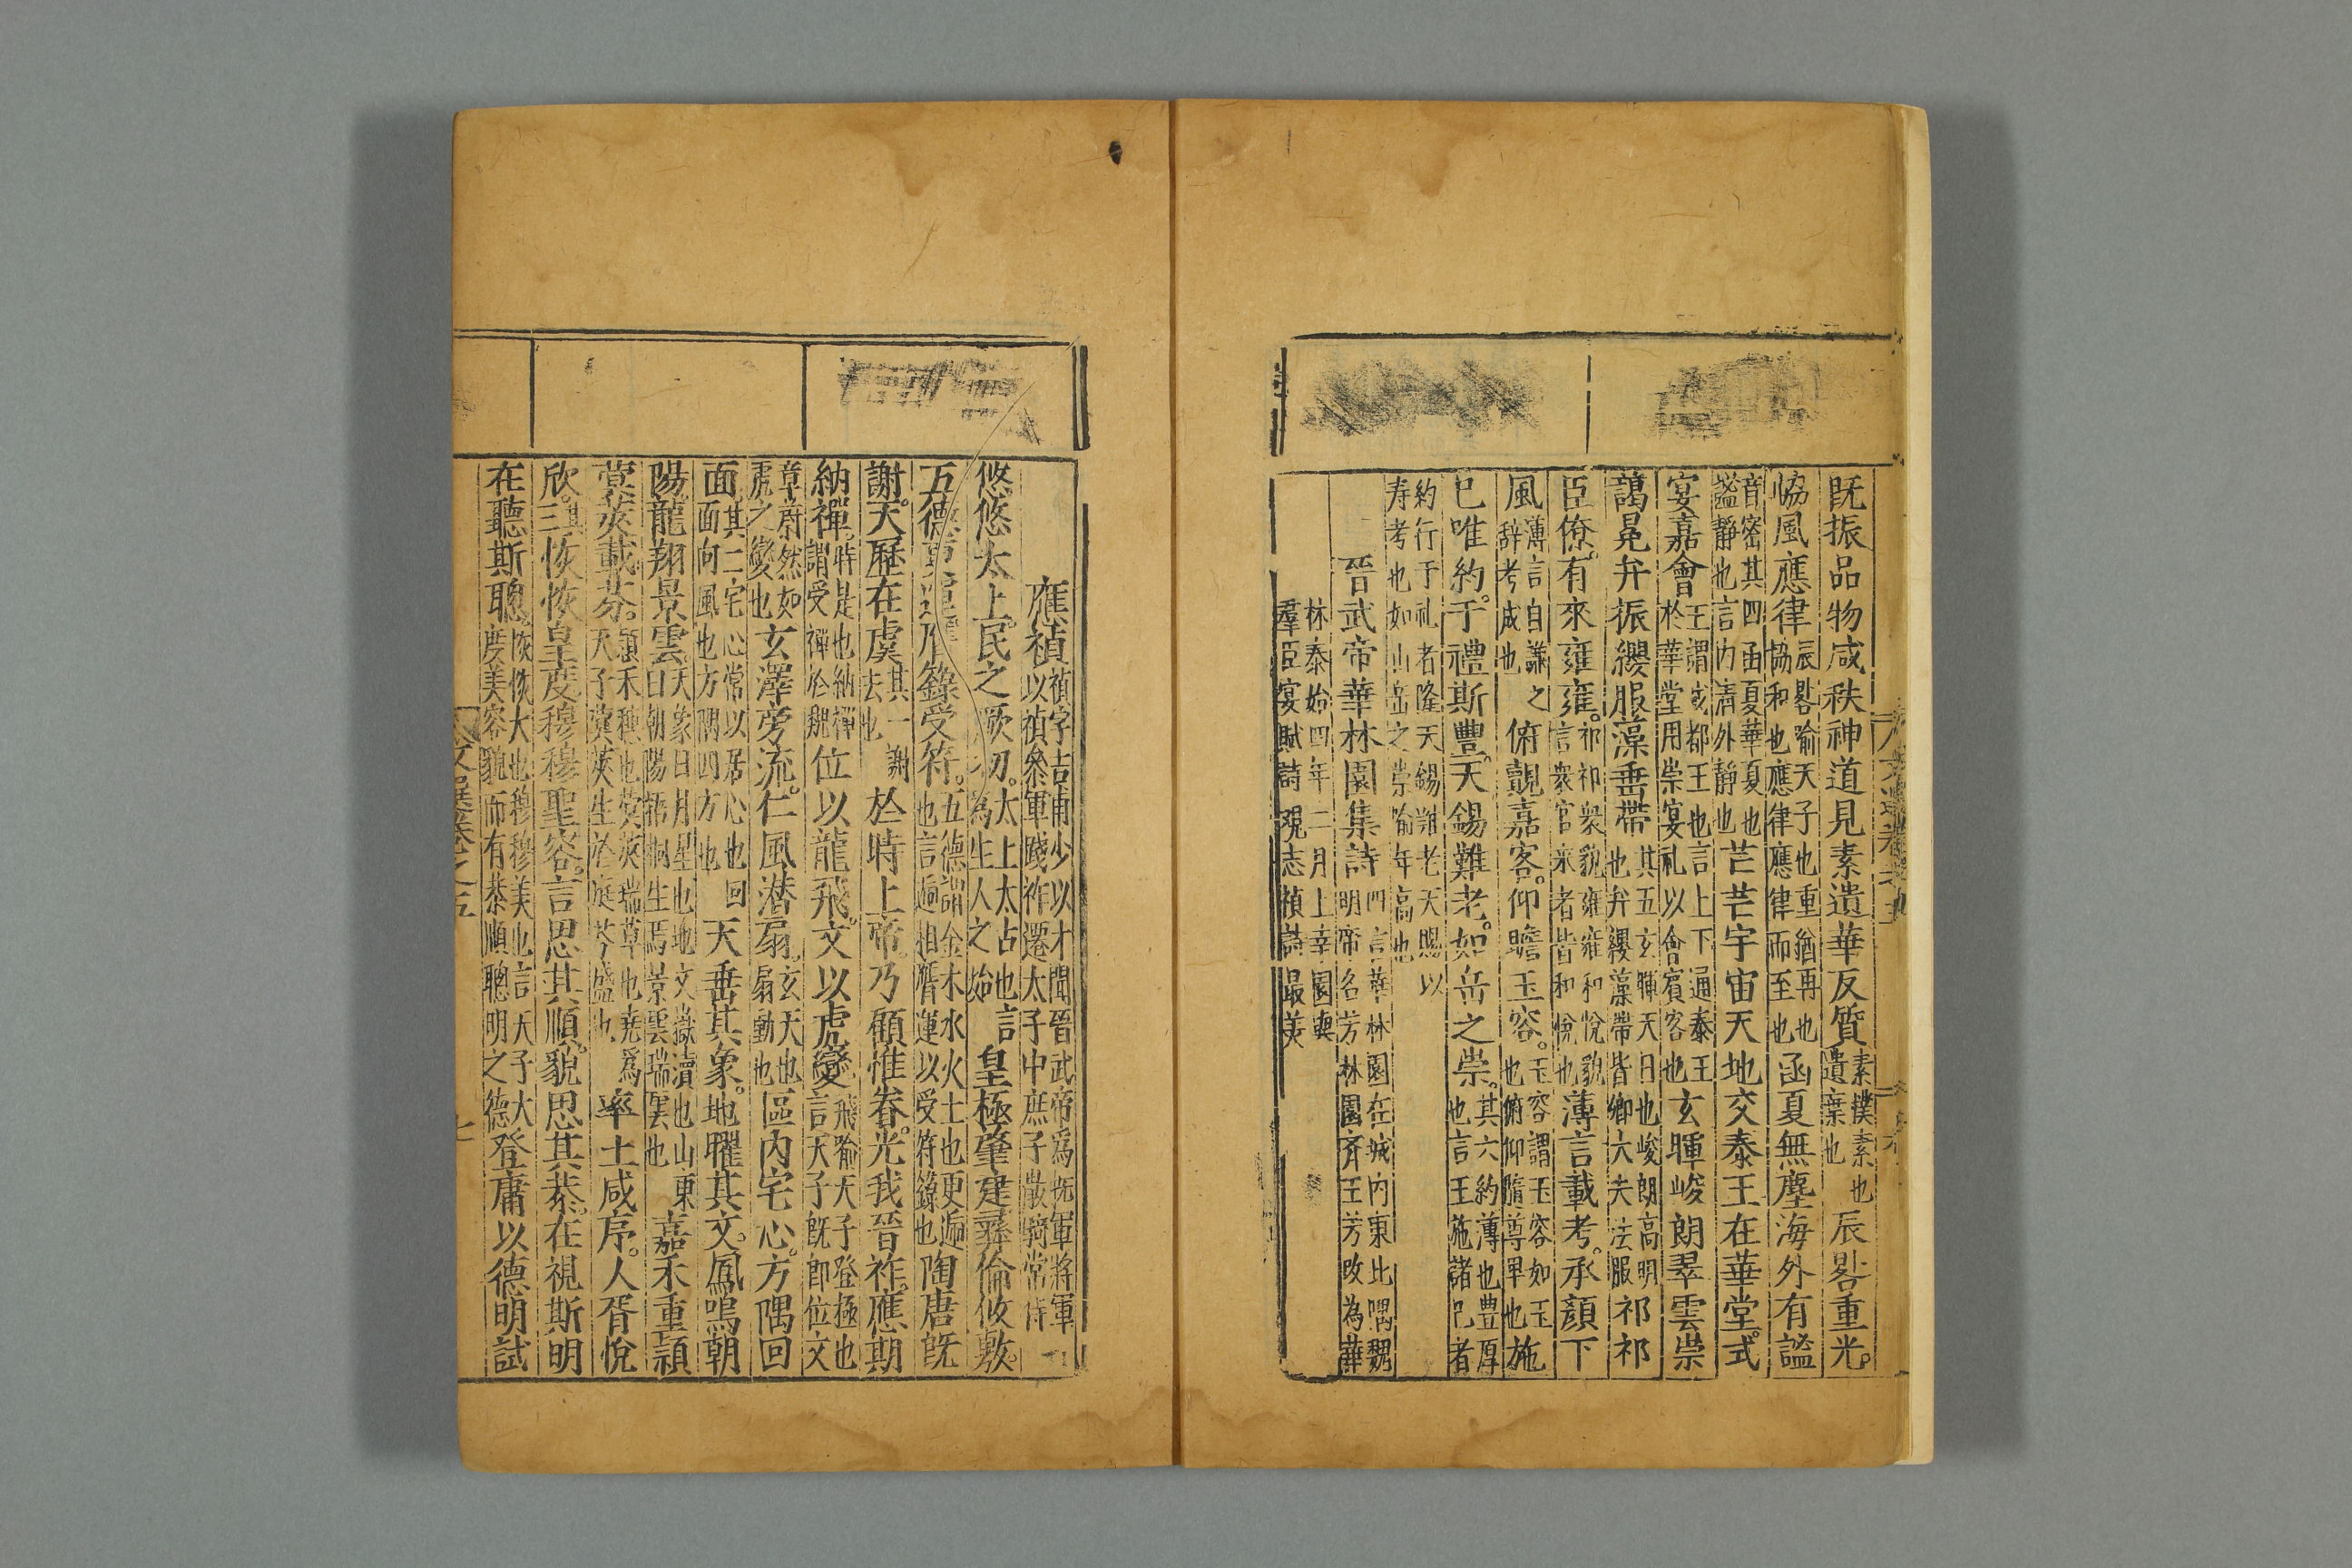 既振品物咸秩神道見素遺華反質素樸素也遺棄也辰晷重光。
恊風應律辰晷喻天子也重猶再也協和也應律應律而至也函夏無塵海外有謐
音密其四函夏華夏也謐靜也言内清外靜也芒芒宇宙天地交泰王在華堂。式
宴嘉會王謂成都王也言上下通泰王於華堂用崇宴礼以會賓客也玄暉峻朗翠雲崇
藹冕弁振纓服藻垂帶其五玄暉天日也峻朗高明也弁纓藻帶皆卿大夫法服祁祁
臣僚。有來雍雍。祁祁衆貌雍雍和悅貌言衆官來者皆和悅也薄言載考。承顔下
風薄言自謙之辞考成也俯覿嘉客。仰瞻玉容。玉容謂玉容如玉也俯仰隋尊罕也施
已唯約。于禮斯豐。天錫難老。如岳之崇。其六約薄也豊厚也言王施諸已者
約行于礼者隆天錫難老天賜以寿考也如山岳之崇喻年高也
晉武帝華林園集詩四言華林園在城内東北隅魏明帝名芳林園齊王芳改為華
林泰始四年二月上幸園與羣臣宴賦詩覌志禎詩最美
應禎禎字吉甫少以才聞晉武帝爲撫軍將軍以禎叅軍踐祚遷太子中庶子散騎常侍
悠悠太上。民之厥初。太上太古也言為生人之始皇極肇建彝倫攸敷。
五德更運膺籙受符。五德謂金木水火土也更遞也言遞相膺運以受符籙也陶唐既
謝。天歷在虞其一謝去也於時上帝。乃顧惟眷。光我晉祚。應期
納禪。時是也納禪謂受禪於魏位以龍飛。文以虎變飛喻天子登極也言天子既即位文
章蔚然如虎之變也玄澤旁流。仁風潜扇。玄天也扇動也區内宅心。方隅回
面。其二宅心常以居心也回面面向風也方隅四方也天垂其象。地曜其文。鳳鳴朝
陽。龍翔景雲。天象日月星也地文嶽瀆也山東曰朝陽梧桐生焉景雲瑞雲也嘉禾重頴
蓂莢載芬。頴禾穗也蓂莢瑞草也堯爲天子蓂莢生於庭芬盛也率土咸序。人胥悅
欣。其三恢恢皇度穆穆聖容。言思其順。貌思其恭。在視斯明
在聽斯聰。恢恢大也穆穆美也言天子大度美容貌而有恭順聰明之德登庸以德明試
文選卷之五
七